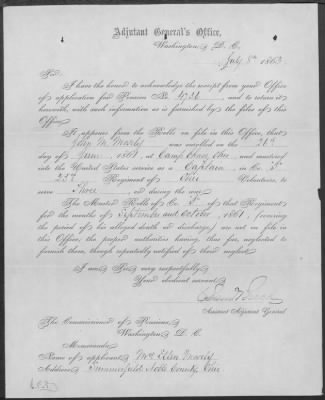 Adjutant General's Office,
Washington, D. C.
July 8th 1863
Sir:
I have the honor to acknowledge the receipt from your Office
of application for Pension No. and to return it
herewith, with such information as is furnished by the files of this
Office.
It appears from the Rolls on file in this Office, that
John M. was enrolled on the 26th
day of June, 1861, at Camp Chase, Ohio, and mustered
into the United States service as a Captain, in Co.
25th Regiment of Ohio Volunteers, to
serve Three, or during the war.
The Muster Rolls of Co. of that Regiment
for the months of September and October, 1861, (covering
the period of his alleged death or discharge) are not on file in
this Office, the proper authorities having, thus far, neglected to
furnish them, though repeatedly notified of their neglect.
I am Sir, very respectfully,
Your obedient servant,
Assistant Adjutant General
The Commissioner of Pensions,
Washington, D. C.
Memoranda:
Name of applicant, Mrs Ellen
Address, Summerfield, Noble County, Ohio